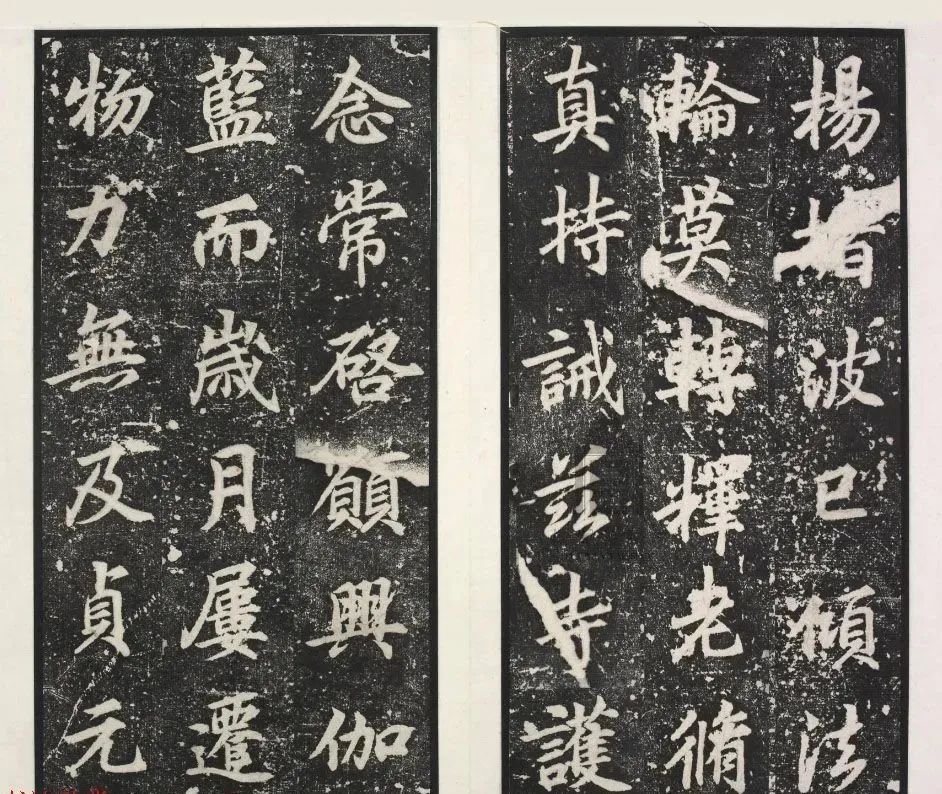 揚者波已傾法
輪莫轉釋老脩
真持誡茲寺護
念常啓願興伽
藍而歲月屢遷
物力無及貞元